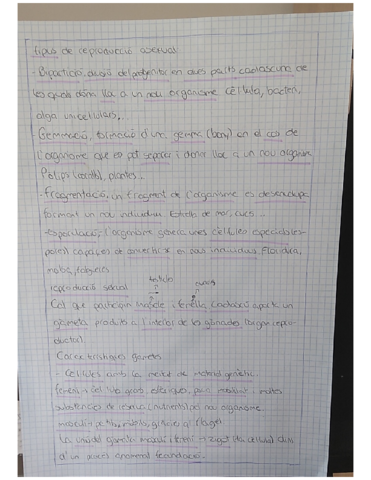 Tipus de reproducció asexual
- Bipartició, divisió del progenitor en dues parts cadascuna de
les quals dóna lloc a un nou organisme cèl·lula, bacteri,
alga unicel·lulars,...
Gemmació, formació d'una gemma (bony) en el cos de
l'organisme que es pot separar i donar lloc a un nou organisme
Pòlip (corall), plantes...
- Fragmentació, un fragment de l'organisme es desenvolupa
formant un nou individuu Estrella de mar, cucs...
- Esporulació, l'organisme genera unes cèl·lules especials (es-
pores) capaces de convertir-se en nous individuus
molses, falgueres
testicle
ovaris
reproducció sexual
Cal que participin mascle i femella cadascú aporta un
gàmeta produits a l'interior de les gònades (organ repro-
ductor)
Característiques gàmetes
- Cèl·lules amb la meitat de material genètic.
femení → cèl·lula grans, esfèriques, poca mobilitat i moltes
substàncies de reserva (nutrients) pel nou organisme.
masculins
La unió gàmeta masculí i femení → zigot (1a cèl·lula) dins
d'un procés anomenat fecundació.